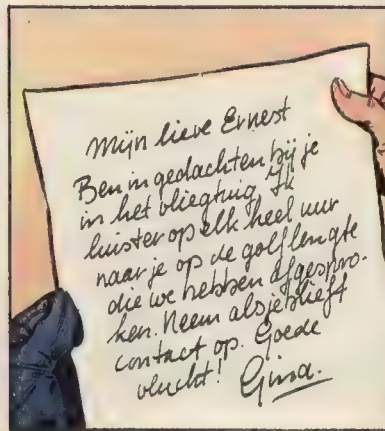 Mijn lieve Ernest
Ben in gedachten bij je
in het vliegtuig. Ik
luister op elk heel uur
naar je op de golflengte
die we hebben afgespro-
ken. Neem alsjeblieft
contact op. Goede
vlucht! Gina.